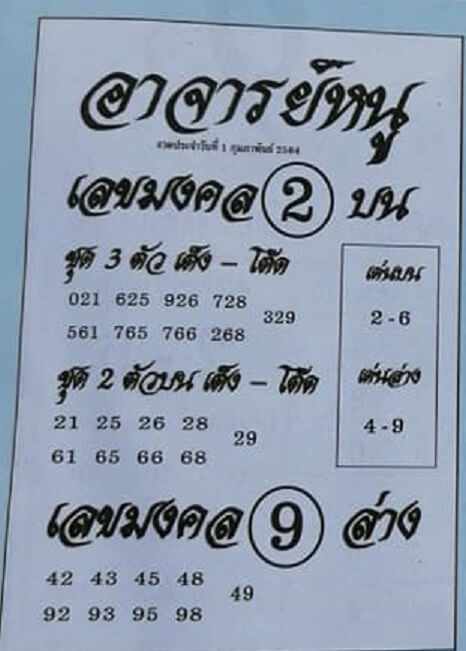 อาจารย์หนู
งวดประจำวันที่ 1 กุมภาพันธ์ 2564
เลขมงคล 2 บน
ชุด 3 ตัว เต็ง – โต๊ด
021 625 926 728
329
561 765 766 268
เด่นบน
2 - 6
ชุด 2 ตัวบน เต็ง – โต๊ด
21 25 26 28
29
61 65 66 68
เด่นล่าง
4 - 9
เลขมงคล 9 ล่าง
42 43 45 48
49
92 93 95 98